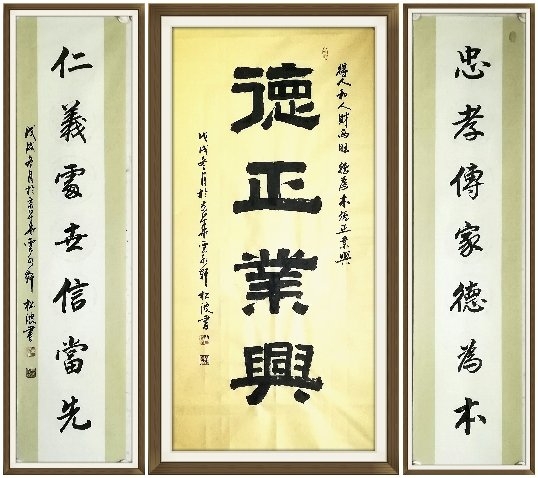 忠孝傳家德為本
得人和人財两旺 德為本德正業興
德正業興
戊戌冬月於京華雲水軒 松波書
仁義處世信當先
戊戌冬月於京華雲水軒 松波書